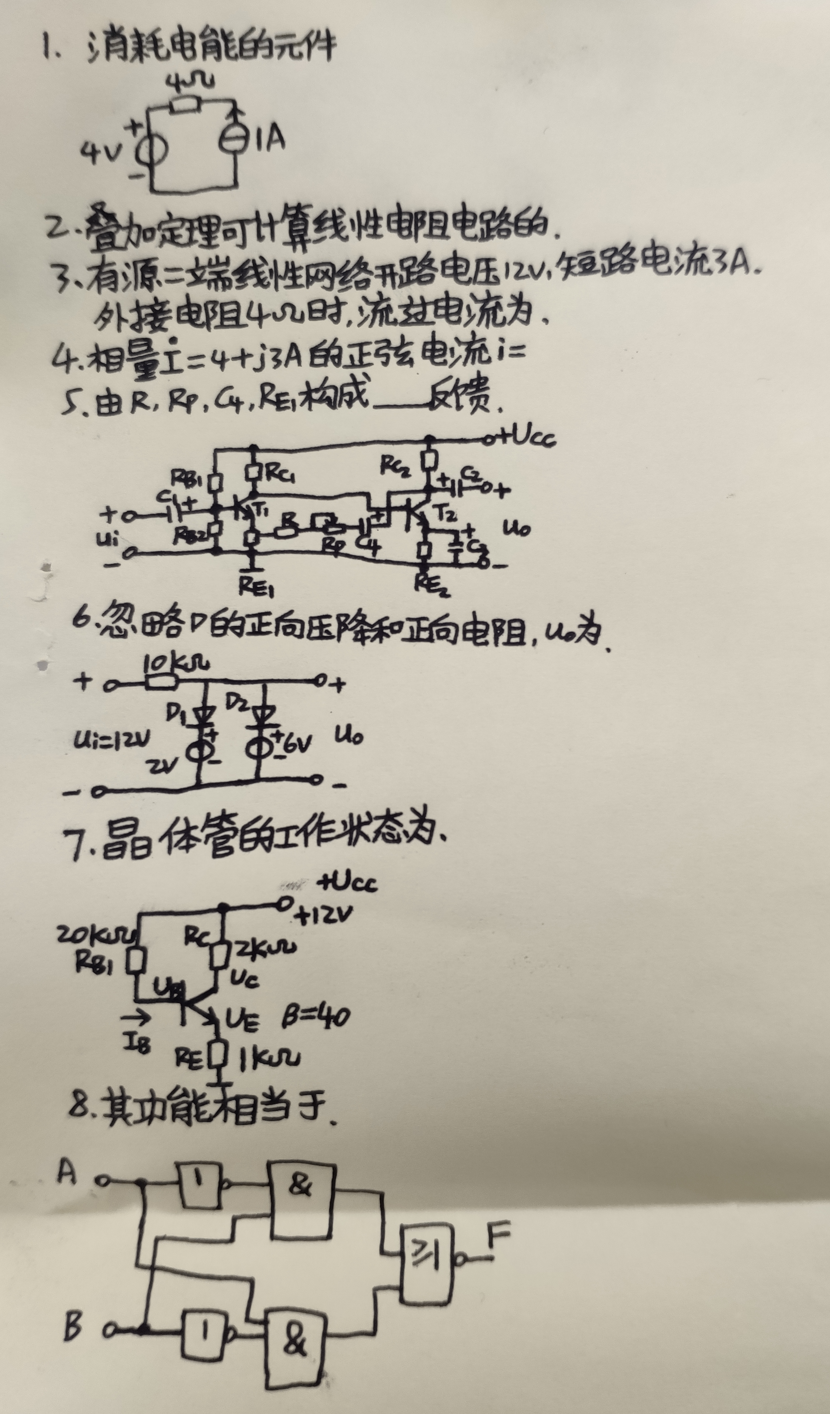 1. 消耗电能的元件
4Ω
+
4V
-
1A
2. 叠加定理可计算线性电阻电路的.
3. 有源二端线性网络开路电压12V, 短路电流3A.
外接电阻4Ω时, 流过电流为.
4. 相量İ=4+j3A的正弦电流i=
5. 由R, RP, C4, RE1构成___反馈.
+UCC
RB1 RC1 RC2 + C2 +
C1 + T1 T2
+ RB2 R RP C4 + + C3 uo
ui
- RE1 RE2 -
6. 忽略D的正向压降和正向电阻, uo为.
10kΩ
+ +
D1 D2
ui=12V + + 6V uo
2V - -
- -
7. 晶体管的工作状态为.
+UCC
+12V
20kΩ RC 2kΩ
RB1
UB UC
UE β=40
IB
RE 1kΩ
8. 其功能相当于.
A 1 &
≥1 F
B 1 &